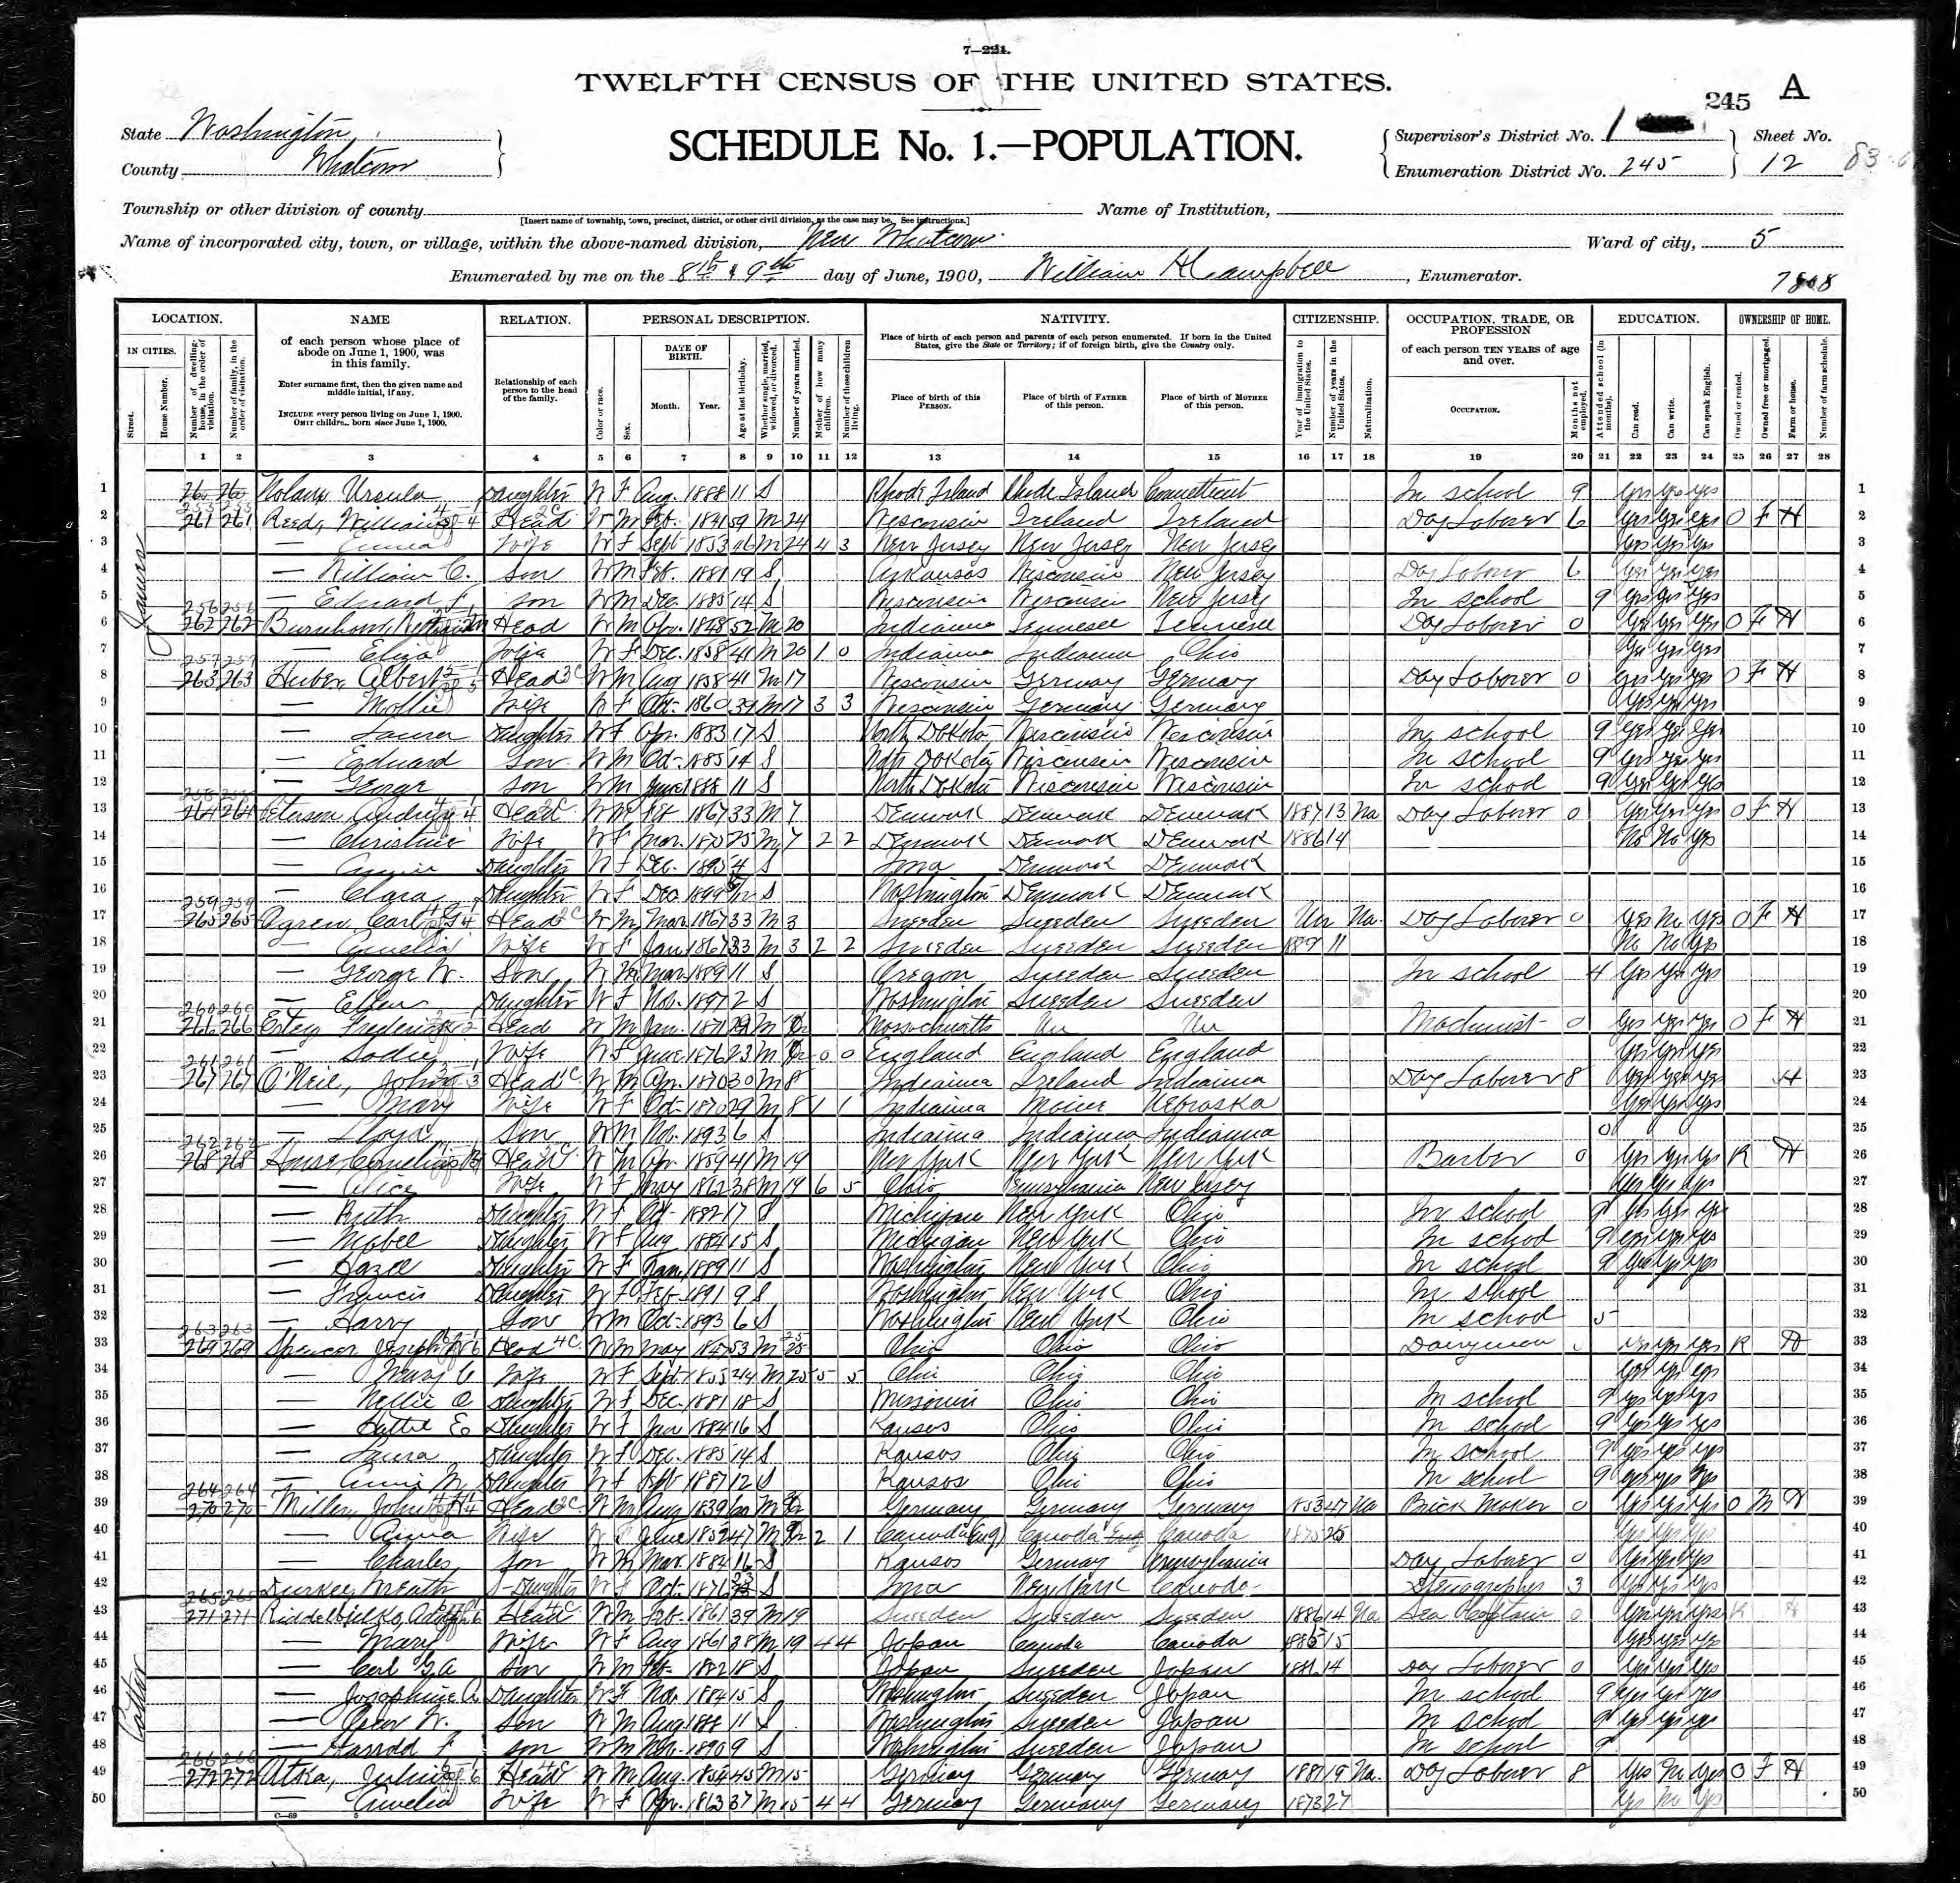 7—224.
TWELFTH CENSUS OF THE UNITED STATES.
245 A
State Washington
County Whatcom
SCHEDULE No. 1.—POPULATION.
Supervisor's District No. 1
Enumeration District No. 245
Sheet No.
12
Township or other division of county
[Insert name of township, town, precinct, district, or other civil division, as the case may be. See instructions.]
Name of Institution,
Name of incorporated city, town, or village, within the above-named division, New Whatcom
Ward of city, 5
Enumerated by me on the 8th & 9th day of June, 1900, William H Campbell, Enumerator.
LOCATION. NAME RELATION. PERSONAL DESCRIPTION. NATIVITY. CITIZENSHIP. OCCUPATION, TRADE, OR PROFESSION EDUCATION. OWNERSHIP OF HOME.
IN CITIES.
Street.
House Number.
Number of dwelling-house, in the order of visitation.
Number of family, in the order of visitation.
of each person whose place of abode on June 1, 1900, was in this family.
Enter surname first, then the given name and middle initial, if any.
INCLUDE every person living on June 1, 1900.
OMIT children born since June 1, 1900.
Relationship of each person to the head of the family.
Color or race.
Sex.
DATE OF BIRTH.
Month. Year.
Age at last birthday.
Whether single, married, widowed, or divorced.
Number of years married.
Mother of how many children.
Number of these children living.
Place of birth of each person and parents of each person enumerated. If born in the United States, give the State or Territory; if of foreign birth, give the Country only.
Place of birth of this PERSON.
Place of birth of FATHER of this person.
Place of birth of MOTHER of this person.
Year of immigration to the United States.
Number of years in the United States.
Naturalization.
of each person TEN YEARS of age and over.
OCCUPATION.
Months not employed.
Attended school (in months).
Can read.
Can write.
Can speak English.
Owned or rented.
Owned free or mortgaged.
Farm or house.
Number of farm schedule.
1 2 3 4 5 6 7 8 9 10 11 12 13 14 15 16 17 18 19 20 21 22 23 24 25 26 27 28
1 Nolan, Ursula Daughter W F Aug. 1888 11 S Rhode Island Rhode Island Connecticut In school 9 yes yes yes 1
2 261 261 Reed, William Head W M Feb. 1841 59 M 24 Wisconsin Ireland Ireland Day Laborer 6 yes yes yes O F H 2
3 — Emma Wife W F Sept 1853 46 M 24 4 3 New Jersey New Jersey New Jersey yes yes yes 3
4 — William C. Son W M Feb. 1881 19 S Arkansas Wisconsin New Jersey Day Laborer 6 yes yes yes 4
5 — Edward F. Son W M Dec. 1885 14 S Wisconsin Wisconsin New Jersey In school 9 yes yes yes 5
6 262 262 Head W M Apr. 1848 52 M 20 Indiana Tennessee Tennessee Day Laborer 0 yes yes yes O F H 6
7 — Eliza Wife W F Dec. 1858 41 M 20 1 0 Indiana Indiana Ohio yes yes yes 7
8 263 263 Huber, Albert Head W M Aug 1858 41 M 17 Wisconsin Germany Germany Day Laborer 0 yes yes yes O F H 8
9 — Mollie Wife W F Oct. 1860 39 M 17 3 3 Wisconsin Germany Germany yes yes yes 9
10 — Laura Daughter W F Apr. 1883 17 S North Dakota Wisconsin Wisconsin In school 9 yes yes yes 10
11 — Edward Son W M Oct. 1885 14 S North Dakota Wisconsin Wisconsin In school 9 yes yes yes 11
12 — George Son W M June 1888 11 S North Dakota Wisconsin Wisconsin In school 9 yes yes yes 12
13 264 264 Peterson, Andrew Head W M Feb 1867 33 M 7 Denmark Denmark Denmark 1887 13 Na Day Laborer 0 yes yes yes O F H 13
14 — Christine Wife W F Mar. 1875 25 M 7 2 2 Denmark Denmark Denmark 1886 14 No No yes 14
15 — Annie Daughter W F Dec. 1895 4 S Iowa Denmark Denmark 15
16 — Clara Daughter W F Dec 1899 S Washington Denmark Denmark 16
17 265 265 Ogren, Carl G. Head W M Mar. 1867 33 M 3 Sweden Sweden Sweden Un Na. Day Laborer 0 yes No yes O F H 17
18 — Amelia Wife W F Jan 1867 33 M 3 2 2 Sweden Sweden Sweden 1889 11 No No yes 18
19 — George W. Son W M Mar. 1889 11 S Oregon Sweden Sweden In school 4 yes yes yes 19
20 — Ellen Daughter W F Nov. 1897 2 S Washington Sweden Sweden 20
21 266 266 Estey, Frederick Head W M Jan. 1871 29 M Massachusetts Un Un Machinist 0 yes yes yes O F H 21
22 — Sadie Wife W F June 1876 23 M 0 0 England England England yes yes yes 22
23 267 267 O'Neil, John Head W M Apr. 1870 30 M 8 Indiana Ireland Indiana Day Laborer 8 yes yes yes H 23
24 — Mary Wife W F Oct. 1870 29 M 8 1 1 Indiana Maine Nebraska yes yes yes 24
25 — Lloyd Son W M Nov. 1893 6 S Indiana Indiana Indiana 0 25
26 268 268 House, Cornelius Head W M Apr 1859 41 M 19 New York New York New York Barber 0 yes yes yes R H 26
27 — Alice Wife W F May 1862 38 M 19 6 5 Ohio Pennsylvania New Jersey yes yes yes 27
28 — Ruth Daughter W F Oct 1882 17 S Michigan New York Ohio In school 9 yes yes yes 28
29 — Mabel Daughter W F Aug 1884 15 S Michigan New York Ohio In school 9 yes yes yes 29
30 — Hazel Daughter W F Jan. 1889 11 S Washington New York Ohio In school 9 yes yes yes 30
31 — Francis Daughter W F Feb 1891 9 S Washington New York Ohio In school 31
32 — Harry Son W M Oct. 1893 6 S Washington New York Ohio In school 5 32
33 269 269 Spencer, Joseph W. Head W M May 1847 53 M 25 Ohio Ohio Ohio Dairyman yes yes yes R H 33
34 — Mary C Wife W F Sept 1855 44 M 25 5 5 Ohio Ohio Ohio yes yes yes 34
35 — Nellie O Daughter W F Dec. 1881 18 S Missouri Ohio Ohio In school 9 yes yes yes 35
36 — Hattie E. Daughter W F Jan 1884 16 S Kansas Ohio Ohio In school 9 yes yes yes 36
37 — Laura Daughter W F Dec. 1885 14 S Kansas Ohio Ohio In school 9 yes yes yes 37
38 — Annie M. Daughter W F Sept 1887 12 S Kansas Ohio Ohio In school 9 yes yes yes 38
39 270 270 Miller, John H Head W M Aug 1839 60 M Germany Germany Germany 1853 47 Na Brick Maker 0 yes yes yes O M H 39
40 — Anna Wife W F June 1852 47 M 2 1 Canada (Eng) Canada Eng Canada 1875 25 yes yes yes 40
41 — Charles Son W M Mar. 1884 16 S Kansas Germany Pennsylvania Day Laborer 0 yes yes yes 41
42 Durkee, S-Daughter W F Oct. 1876 23 S Iowa New York Canada Stenographer 3 yes yes yes 42
43 271 271 Head W M Feb. 1861 39 M 19 Sweden Sweden Sweden 1886 14 Na Sea Captain 0 yes yes yes R H 43
44 — Mary Wife W F Aug 1861 38 M 19 4 4 Japan Canada Canada 1885 15 yes yes yes 44
45 — Carl G. A Son W M Feb. 1882 18 S Japan Sweden Japan 1886 14 Day Laborer 0 yes yes yes 45
46 — Josephine A. Daughter W F Nov. 1884 15 S Washington Sweden Japan In school 9 yes yes yes 46
47 — Oscar W. Son W M Aug 1888 11 S Washington Sweden Japan In school 9 yes yes yes 47
48 — Harrold F Son W M Nov. 1890 9 S Washington Sweden Japan In school 9 48
49 272 272 Atska, Julius Head W M Aug. 1854 45 M 15 Germany Germany Germany 1881 19 Na. Day Laborer 8 yes No yes O F H 49
50 — Amelia Wife W F Apr. 1863 37 M 15 4 4 Germany Germany Germany 1873 27 yes No yes 50
James